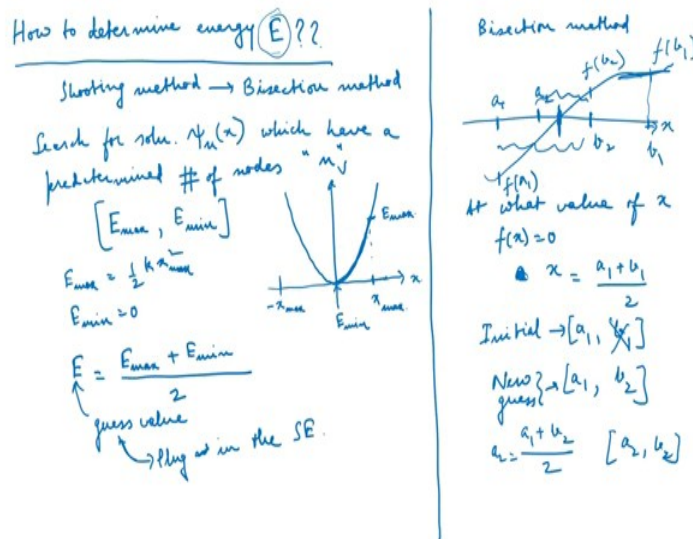 How to determine energy E ??
Shooting method → Bisection method
Search for soln. ψn(x) which have a
predetermined # of nodes "n"
[Emax, Emin]
Emax = 1/2 k x²max
Emin = 0
E = (Emax + Emin)/2
guess value
→ Plug in the SE.
Emax
x
-xmax
xmax
Emin
Bisection method
f(b1)
f(b2)
a1
a2
x
b2
b1
f(a1)
At what value of x
f(x) = 0
x = (a1 + b1)/2
Initial → [a1, b1]
New guess } → [a1, b2]
a2 = (a1 + b2)/2 [a2, b2]